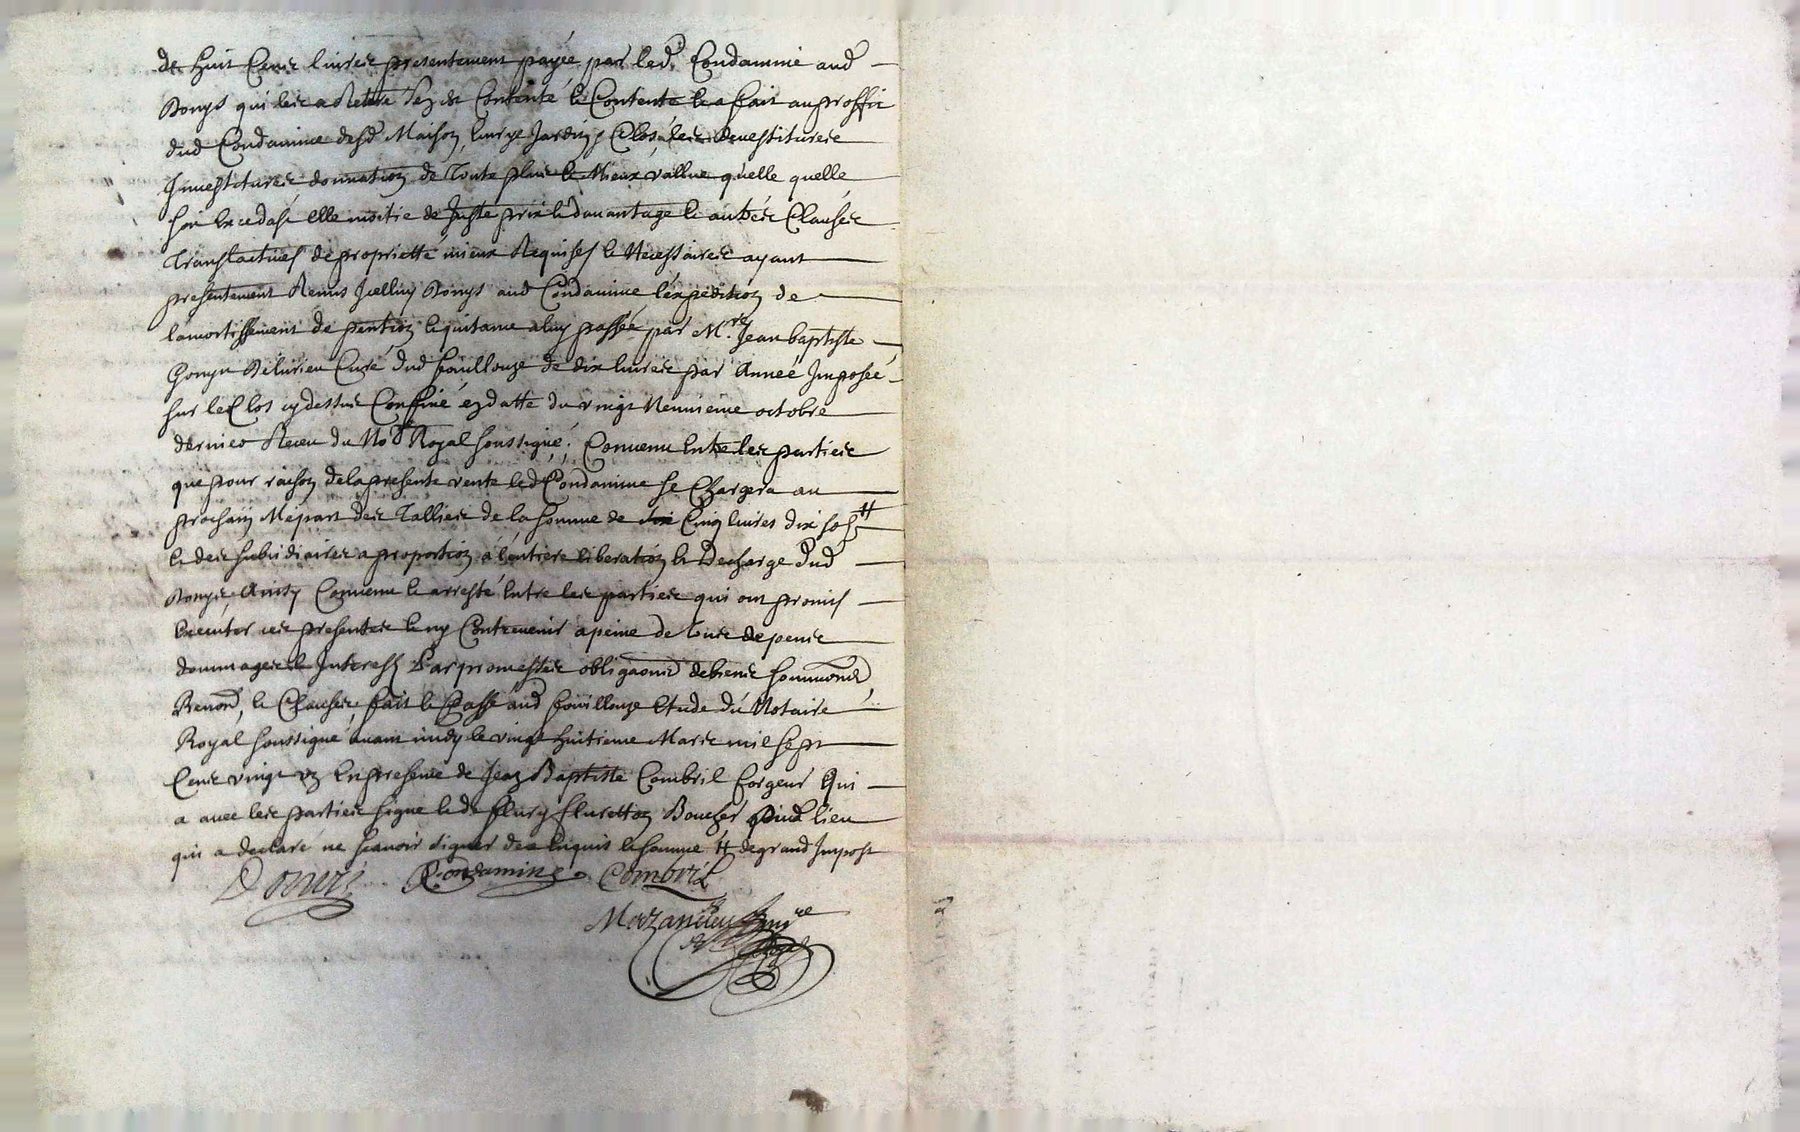 de huit Cens livres presentement payée par led. Condamine aud
Donys qui les a Retiré s'en est Contenté & Contente & a fait au proffit
dud Condamine desd Maison, Jardin, Clos, les devestitures
Investitures donnation de toute plus & Mieux vallue quelle quelle
soit Excedasé elle moitie de Juste prix & davantage & autres Clauses
translactives de proprietté mieux Requises & Necessaires ayant
presentement Remis Icelluy Donys aud Condamine l'expedition de
lamortissement de pention & quitance a luy passée par Mre Jean baptiste
Curé dud fouillouze de dix livres par Année Imposée
sur le Clos cy dessus Confiné en datte du vingt Neuvieme octobre
dernier Receu du No.re Royal soussigné; Convenu Entre les parties
que pour raison de la presente vente led Condamine se Chargera au
prochain Mépart des Tallies de la somme de Cinq livres dix sols #
& des subsidiaires a proportion a l'entiere liberation & Decharge dud
Donys, Ainsy Convenu & arresté Entre les parties qui ont promis
Executer ces presentes & ny Contrevenir a peine de tous depens
dommages & Interests Par promesses obligaons de biens
Renon, & Clauses, fait & Passé aud fouillouze Etude du Notaire
Royal soussigné avant midy le vingt huitieme Mars mil sept
Cens vingt un En presence de Jean Baptiste Combril forgeur Qui
a avec les parties signe & de fleury fluretton Boucher dud lieu
qui a declaré ne scavoir signer de ce Enquis & sommé # de grand Impost
Donis Condamine Combril
Mazancieu